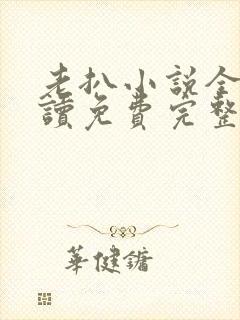 老扒小说全
讀免費完整
華健鏞